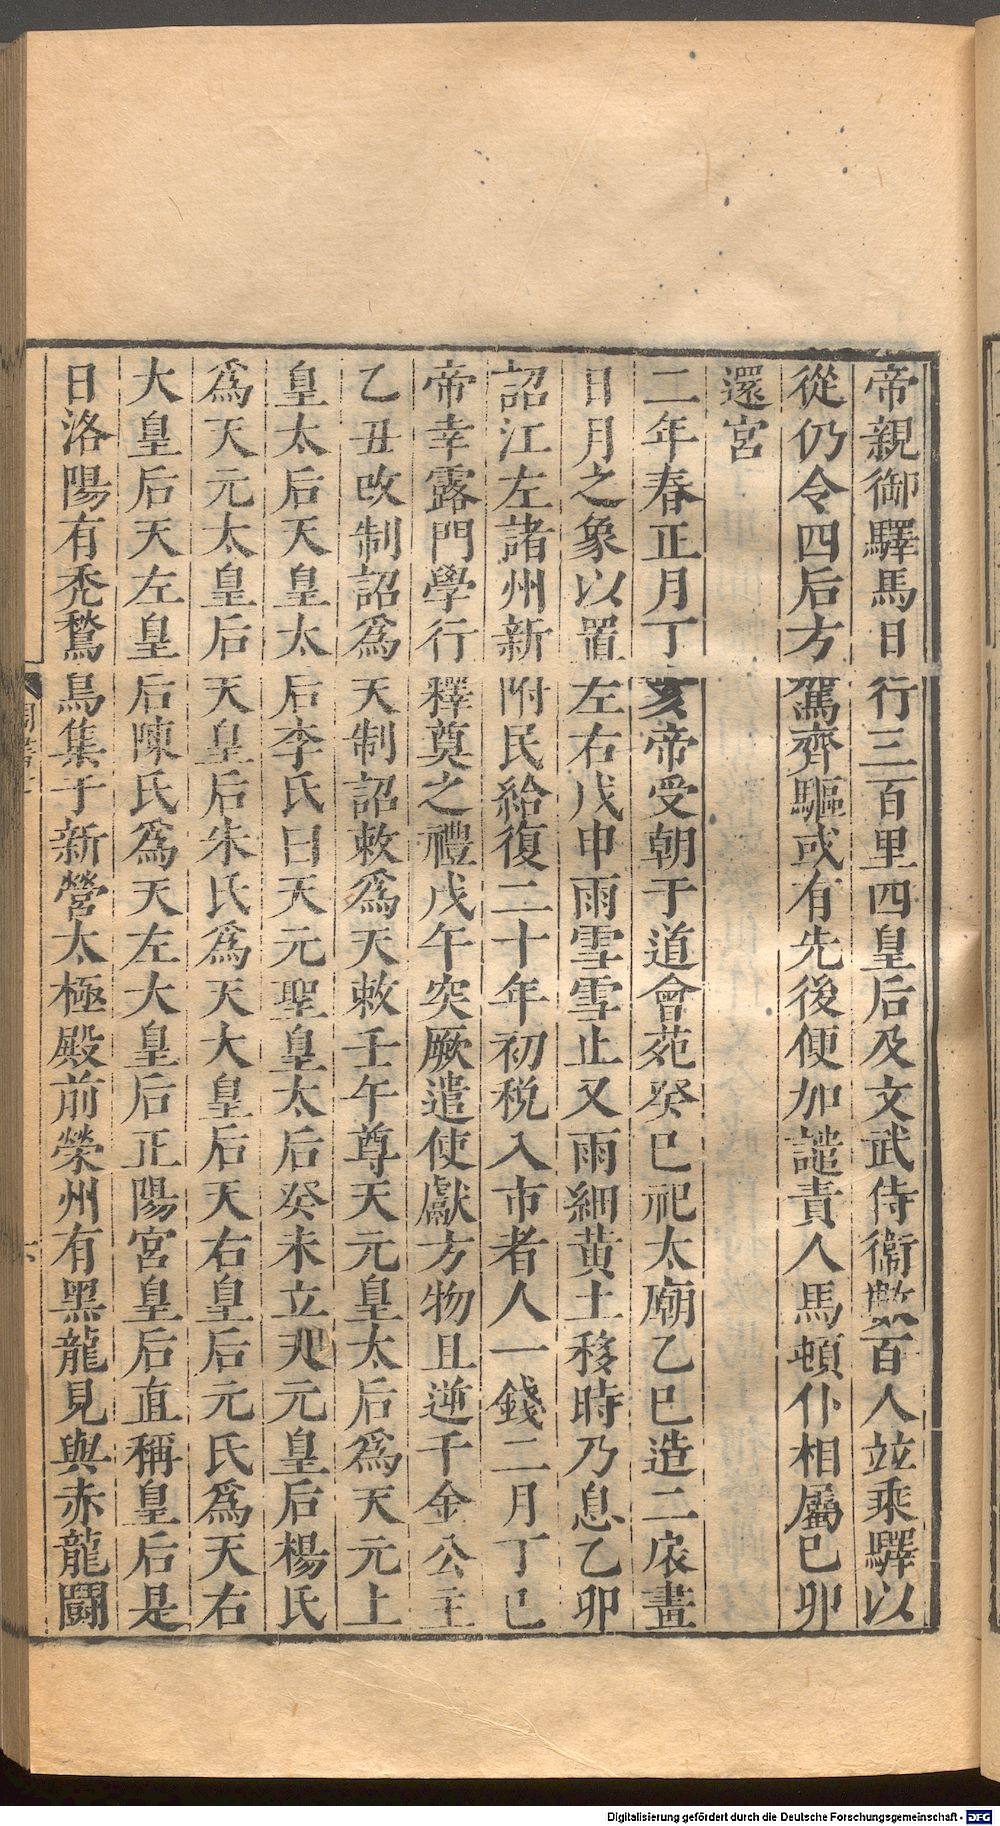 帝親御驛馬日行三百里四皇后及文武侍衞數百人竝乘驛以
從仍令四后方駕齊驅或有先後便加譴責人馬頓仆相屬己卯
還宮
二年春正月丁亥帝受朝于道會苑癸巳祀太廟乙巳造二扆畫
日月之象以置左右戊申雨雪雪止又雨細黄土移時乃息乙卯
詔江左諸州新附民給復二十年初稅入市者人一錢二月丁巳
帝幸露門學行釋奠之禮戊午突厥遣使獻方物且逆千金公主
乙丑改制詔爲天制詔敕爲天敕壬午尊天元皇太后爲天元上
皇太后天皇太后李氏曰天元聖皇太后癸未立天元皇后楊氏
爲天元太皇后天皇后朱氏爲天大皇后天右皇后元氏爲天右
大皇后天左皇后陳氏爲天左大皇后正陽宮皇后直稱皇后是
日洛陽有禿鶖鳥集于新營太極殿前榮州有黑龍見與赤龍鬭
Digitalisierung gefördert durch die Deutsche Forschungsgemeinschaft - DFG